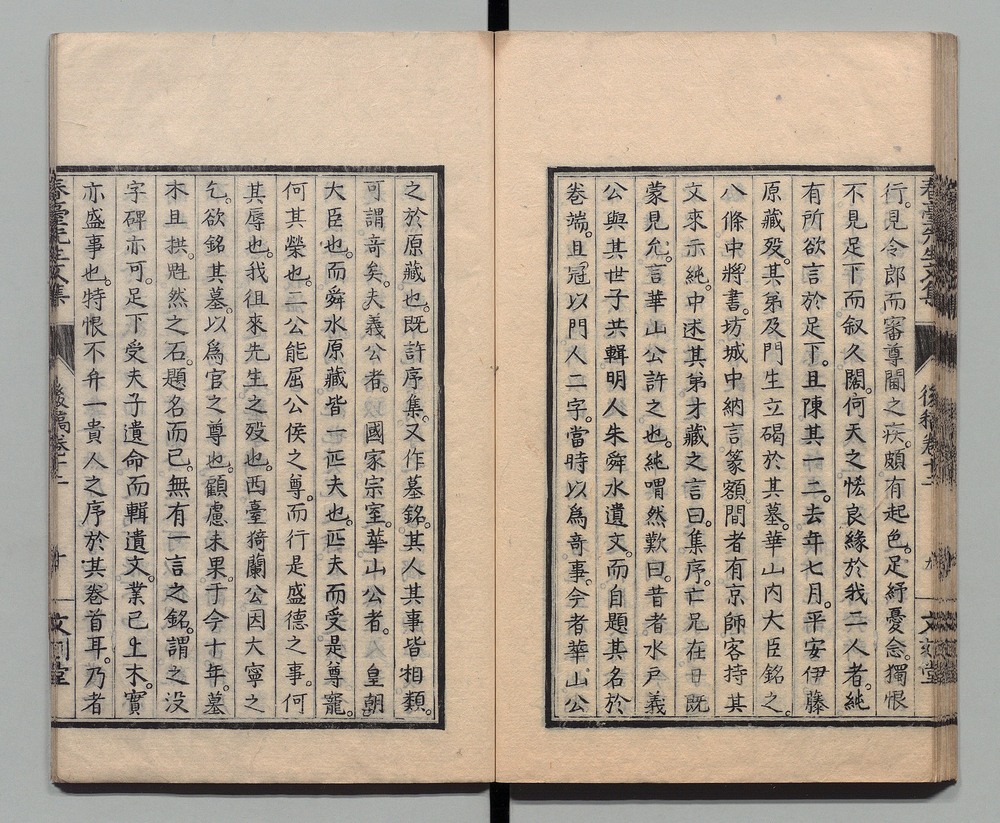 行。見令郎而審尊閫之疾。頗有起色。足紓憂念。獨恨
不見足下而叙久闊。何天之恡良緣於我二人者。純
有所欲言於足下。且陳其一二。去年七月。平安伊藤
原藏歿。其弟及門生立碣於其墓。華山内大臣銘之。
八條中將書。坊城中納言篆額。間者有京師客持其
文來示純。中述其弟才藏之言曰。集序。亡兄在日既
蒙見允。言華山公許之也。純喟然歎曰。昔者水戸義
公與其世子共輯明人朱舜水遺文。而自題其名於
卷端。且冠以門人二字。當時以爲奇事。今者華山公
之於原藏也。既許序集。又作墓銘。其人其事皆相類。
可謂奇矣。夫義公者。國家宗室。華山公者。皇朝
大臣也。而舜水原藏皆一匹夫也。匹夫而受是尊寵。
何其榮也。二公能屈公侯之尊。而行是盛德之事。何
其辱也。我徂來先生之歿也。西臺猗蘭公因大寧之
乞。欲銘其墓。以爲官之尊也。顧慮未果。于今十年。墓
木且拱。塊然之石。題名而已。無有一言之銘。謂之没
字碑亦可。足下受夫子遺命而輯遺文。業已上木。實
亦盛事也。特恨不弁一貴人之序於其卷首耳。乃者
春臺先生文集
後稿卷十二
文刻堂